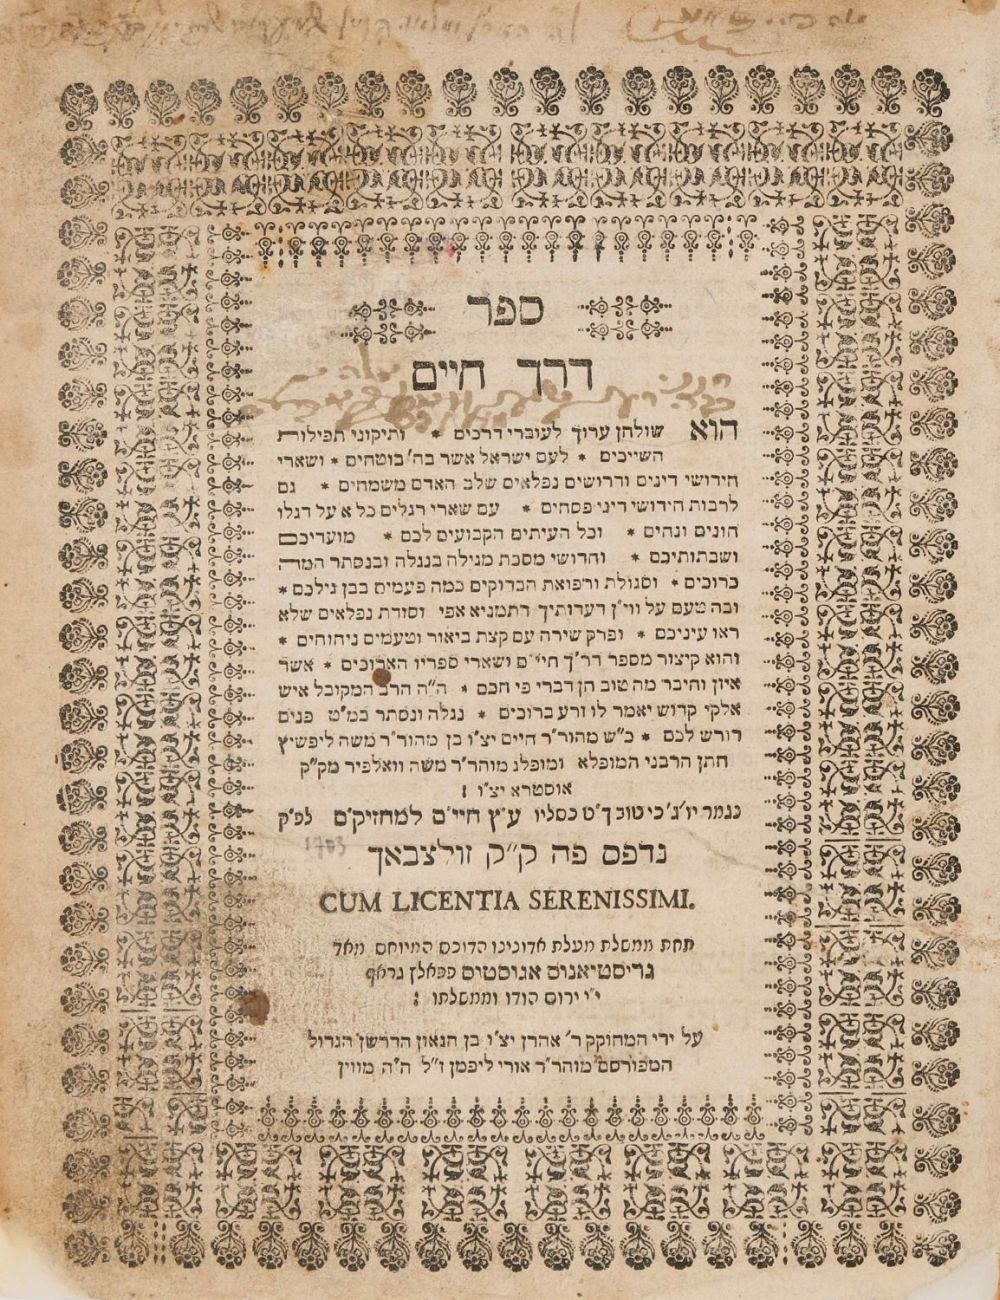 ספר
דרך חיים
הוא שולחן ערוך לעוברי דרכים * ותיקוני תפילות
השייכים * לעם ישראל אשר בה' בוטחים * ושארי
חידושי דינים ודרושים נפלאים שלב האדם משמחים * גם
לרבות חידושי דיני פסחים * עם שארי רגלים כל א על דגלו
חונים ונהים * וכל העיתים הקבועים לכם * מועדיכם
ושבתותיכם * וחדושי מסכת מגילה בנגלה ובנסתר המה
כרוכים * וסגולת ורפואת הבדוקים כמה פעמים בבן גילכם *
ובה טעם על ווי"ן דערותיך רתמניא אפי וסודת נפלאים שלא
ראו עיניכם * ופרק שירה עם קצת ביאור וטעמים ניחוחים *
והוא קיצור מספר דר"ך חיי"ם ושארי ספריו הארוכים * אשר
איזן וחיבר מה טוב חן דברי פי חכם * ה"ה הרב המקובל איש
אלקי קדוש יאמר לו זרע ברוכים * נגלה ונסתר במ"ט פנים
דורש לכם * כ"ש מהור"ר חיים יצ"ו בן מהור"ר משה ליפשיץ
חתן הרבני המופלא ומופלג מוהר"ר משה וואלפיר מק"ק
אוסטרא יצ"ו :
נגמר יו' ג' כי טוב ך"ט כסליו ע"ץ חיי"ם למחזיק"ם לפ"ק
1703
נדפס פה ק"ק זולצבאך
CUM LICENTIA SERENISSIMI.
תחת ממשלת מעלת אדונינו הדוכס המיוחס מאד
גריסטיאנוס אגוסטיס פפאלץ גראף
י"י ירום הודו וממשלתו :
על ידי המחוקק ר' אהרן יצ"ו בן הגאון הדרשן הגדול
המפורסם מוהר"ר אורי ליפמן ז"ל ה"ה מווין